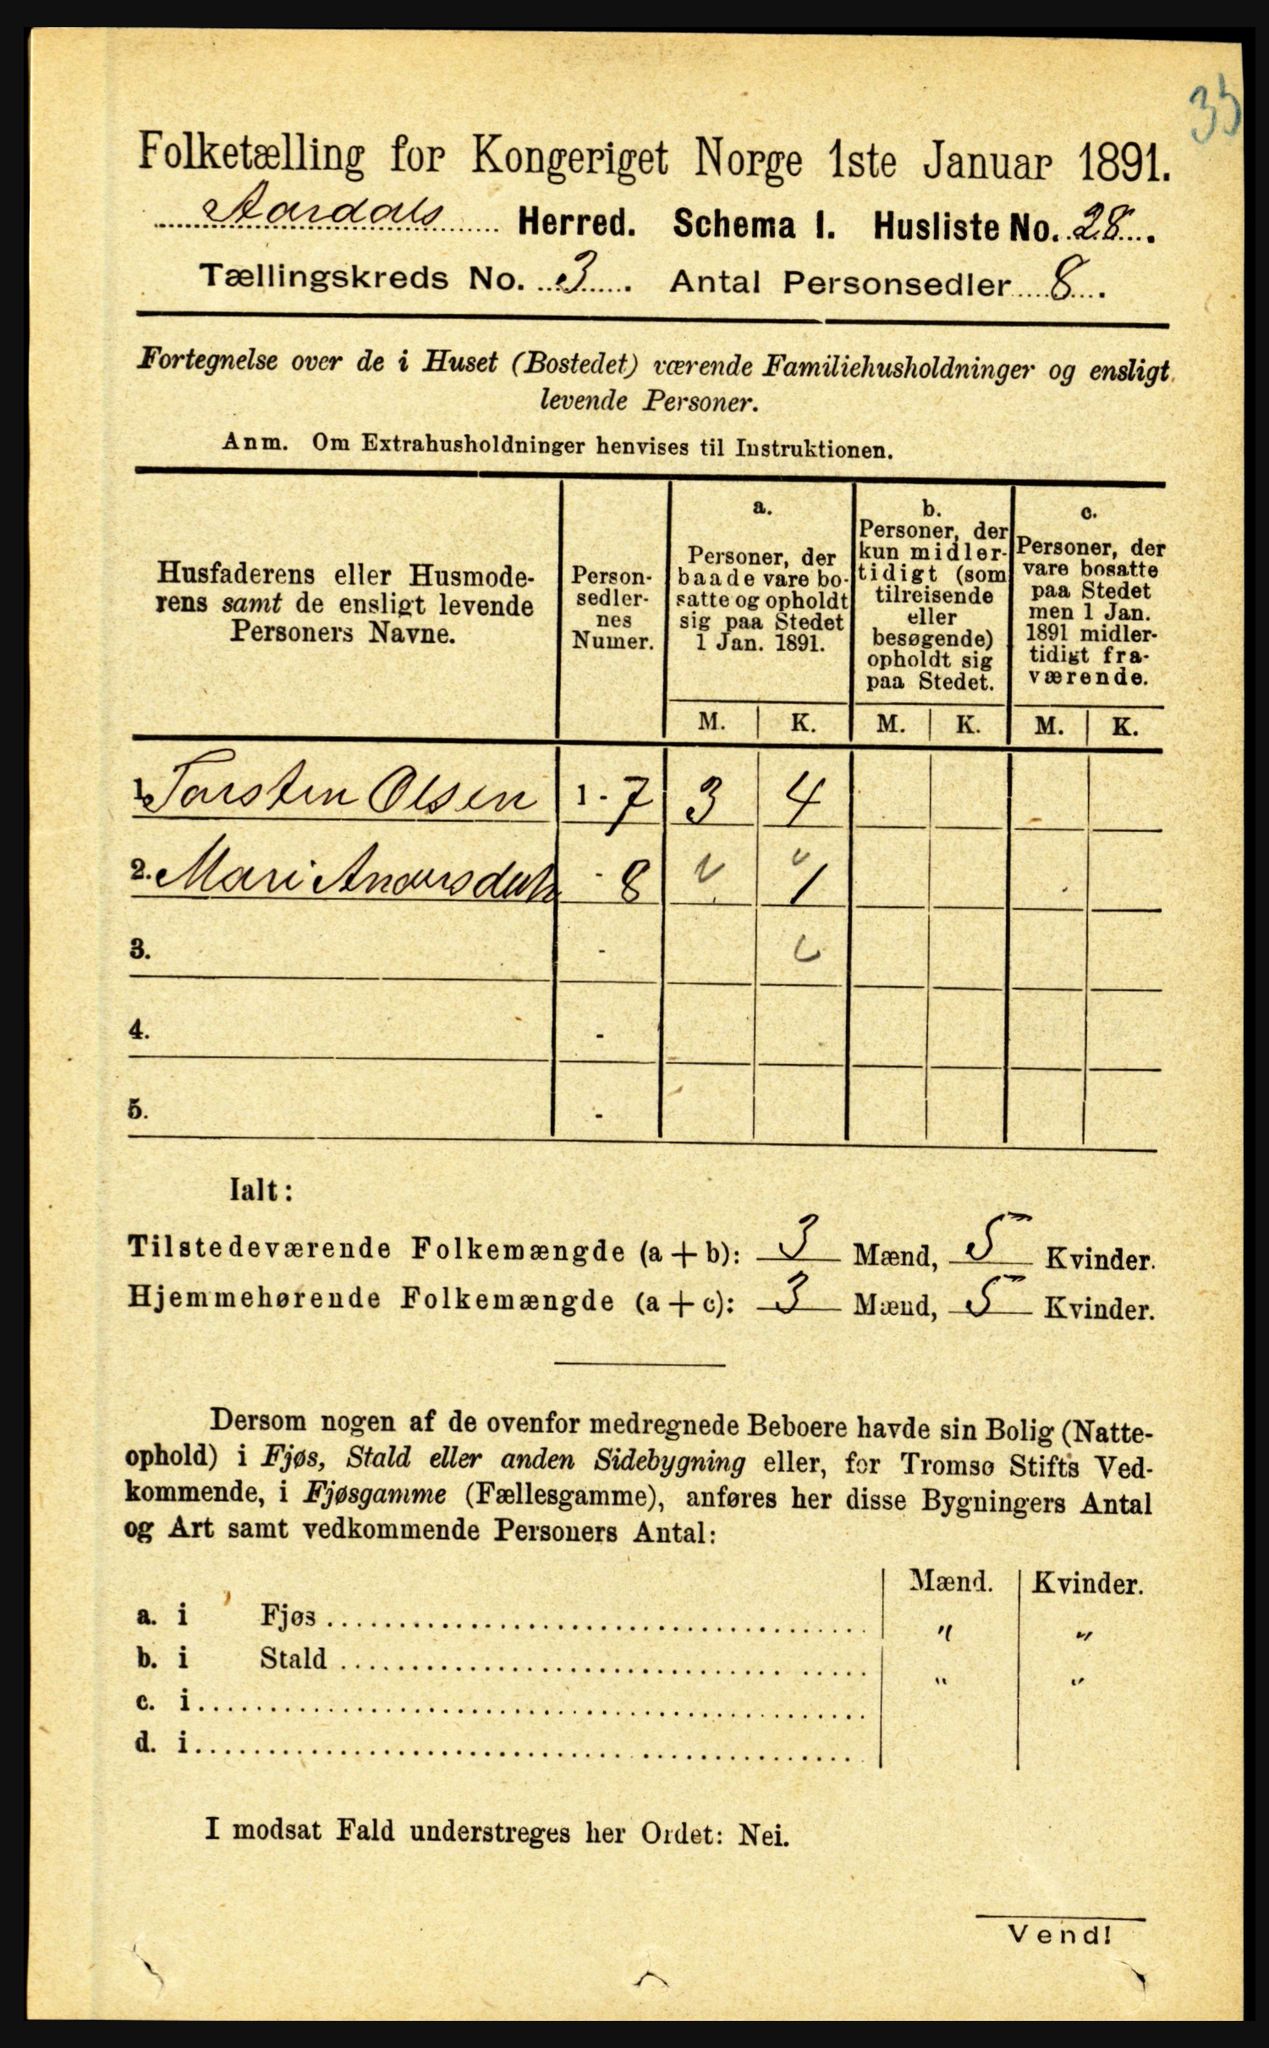 35
Folketælling for Kongeriget Norge 1ste Januar 1891.
Aardals Herred. Schema I. Husliste No. 28.
Tællingskreds No. 3. Antal Personsedler 8.
Fortegnelse over de i Huset (Bostedet) værende Familiehusholdninger og ensligt
levende Personer.
Anm. Om Extrahusholdninger henvises til Instruktionen.
Husfaderens eller Husmode-
rens samt de ensligt levende
Personers Navne.
Person-
sedler-
nes
Numer.
a.
Personer, der
baade vare bo-
satte og opholdt
sig paa Stedet
1 Jan. 1891.
b.
Personer, der
kun midler-
tidigt (som
tilreisende
eller
besøgende)
opholdt sig
paa Stedet.
c.
Personer, der
vare bosatte
paa Stedet
men 1 Jan.
1891 midler-
tidigt fra-
værende.
M. K. M. K. M. K.
1. Torsten Olsen 1 - 7 3 4
2. Mari Andersdatter - 8 1
3. -
4. -
5. -
Ialt:
Tilstedeværende Folkemængde (a + b): 3 Mænd, 5 Kvinder.
Hjemmehørende Folkemængde (a + c): 3 Mænd, 5 Kvinder.
Dersom nogen af de ovenfor medregnede Beboere havde sin Bolig (Natte-
ophold) i Fjøs, Stald eller anden Sidebygning eller, for Tromsø Stifts Ved-
kommende, i Fjøsgamme (Fællesgamme), anføres her disse Bygningers Antal
og Art samt vedkommende Personers Antal:
Mænd. Kvinder.
a. i Fjøs " "
b. i Stald " "
c. i
d. i
I modsat Fald understreges her Ordet: Nei.
Vend!